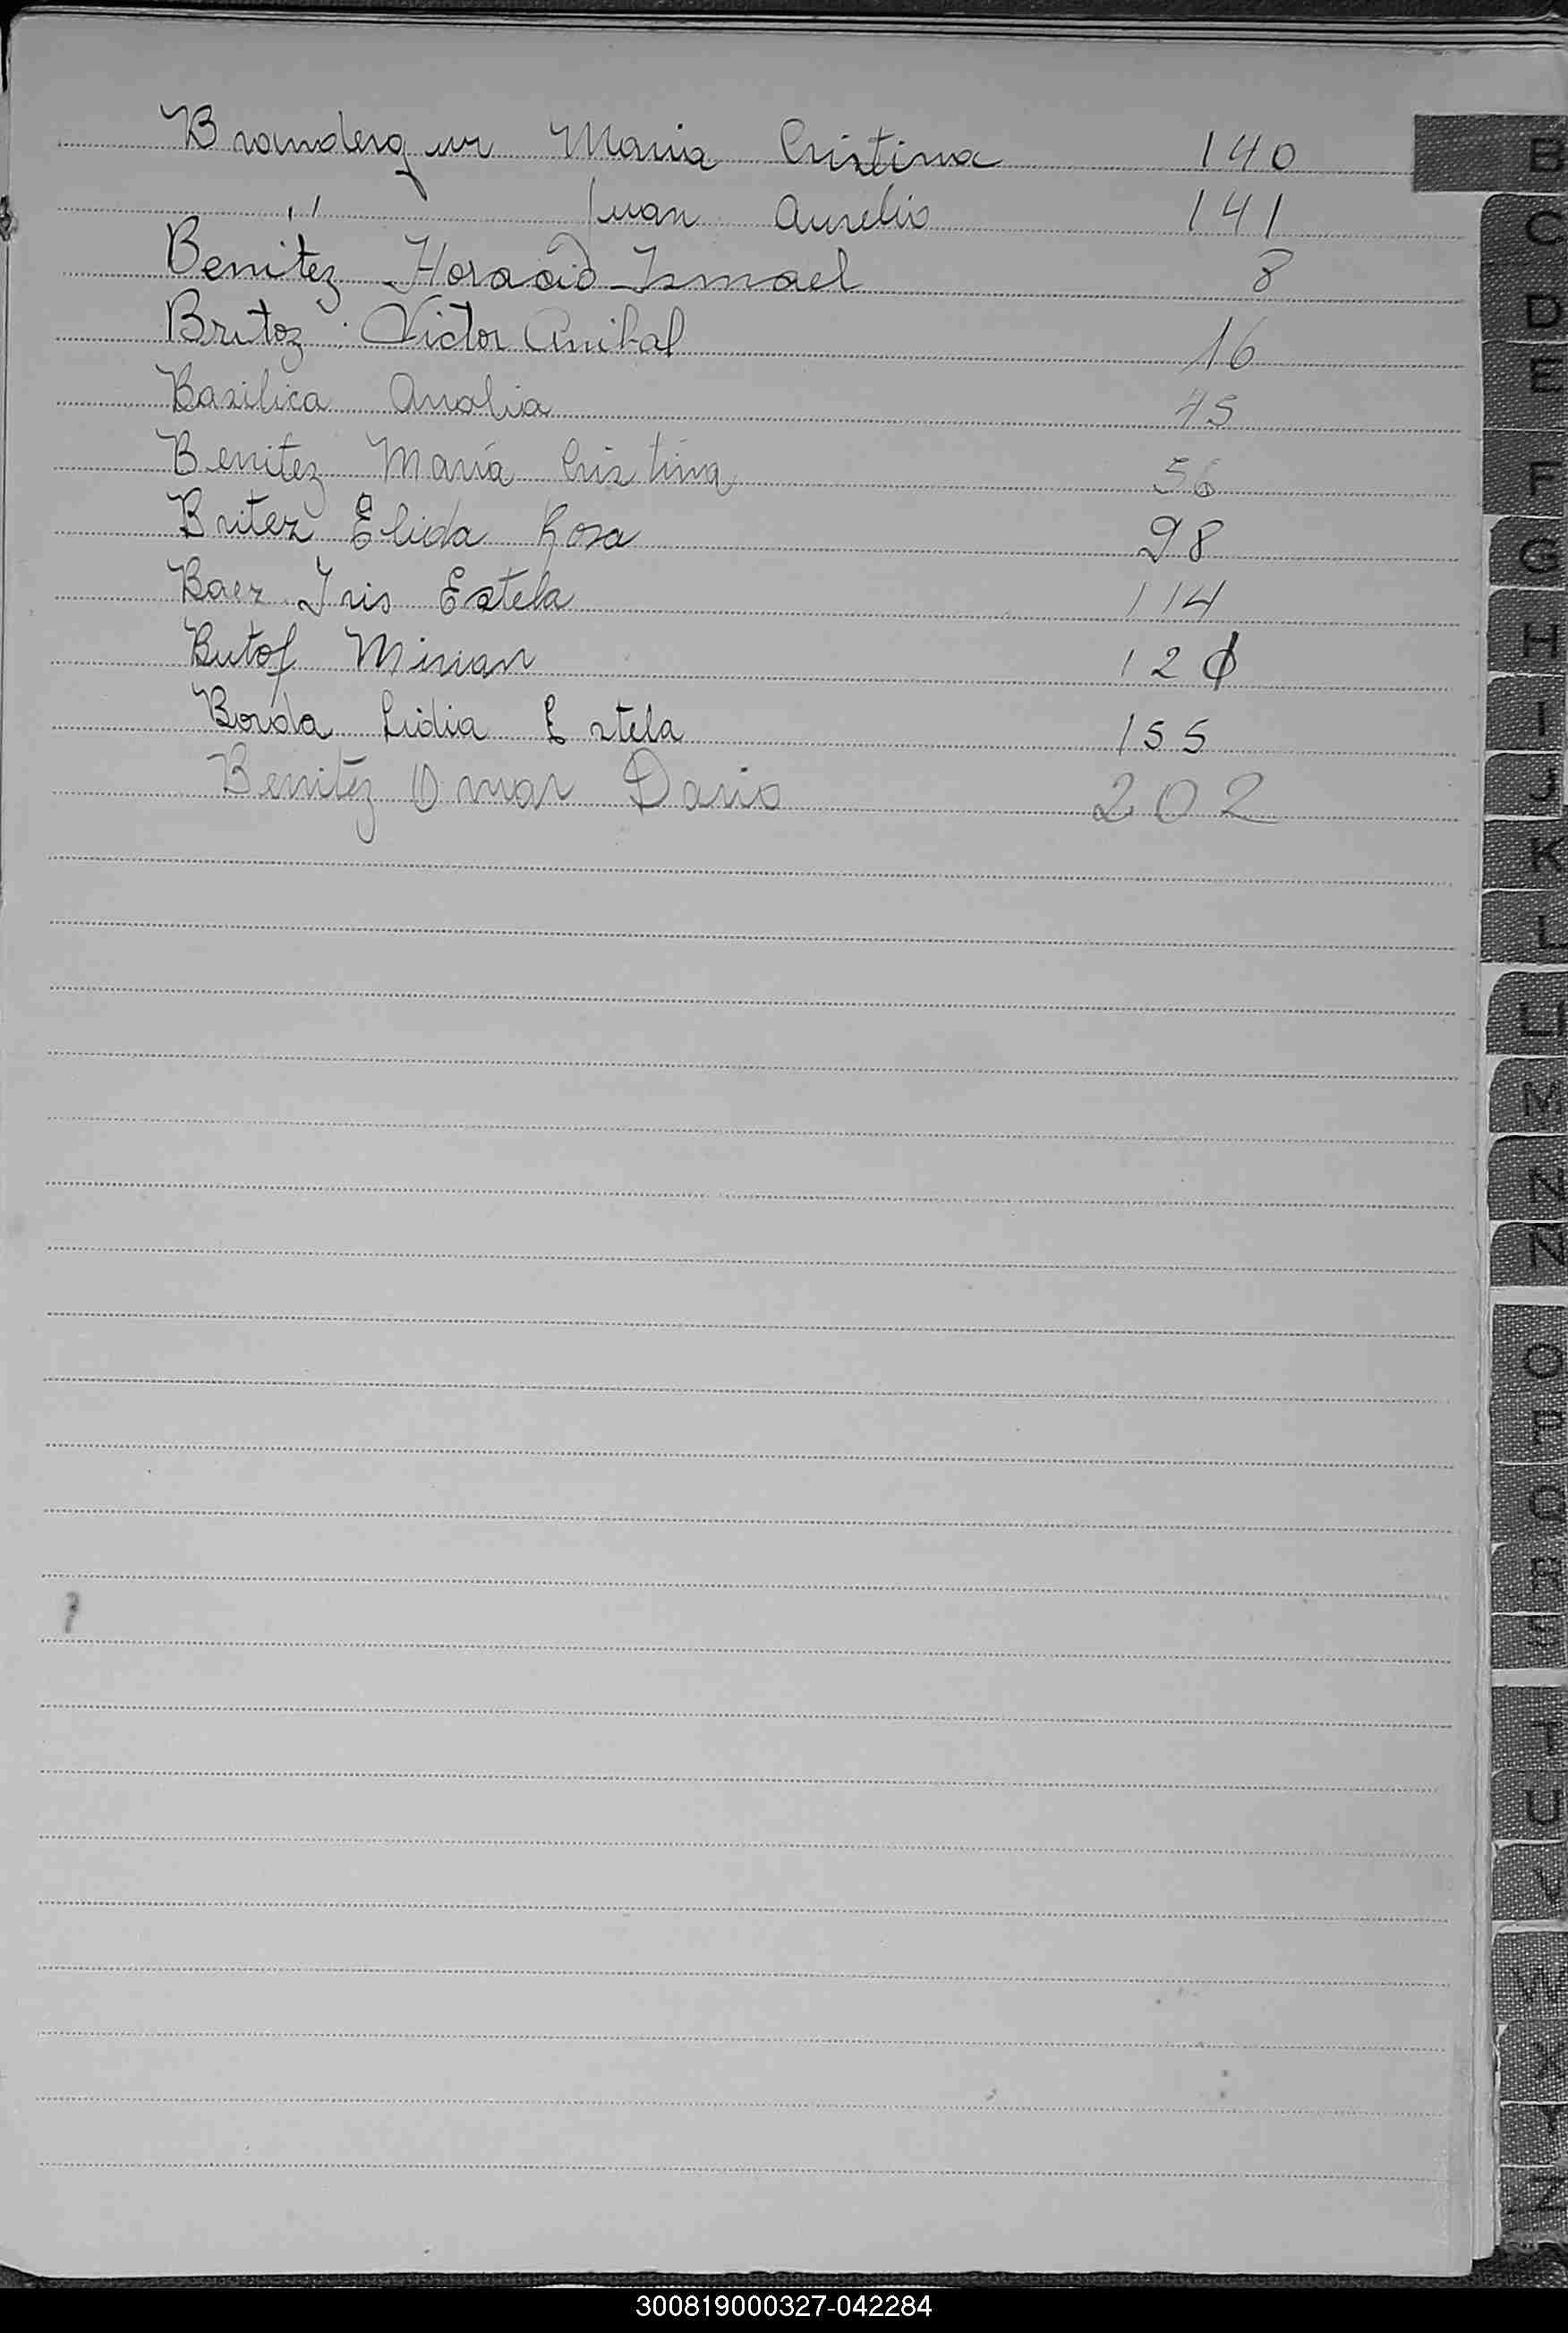 Brandergur Maria Cristina 140
" Juan Aurelio 141
Benitez Horacio Ismael 8
Britoz Victor Anibal 16
Basilica Analia 45
Benitez María Cristina 56
Britez Elida Rosa 98
Baez Iris Estela 114
Butof Mirian 120
Borda Lidia Estela 155
Benitez Omar Dario 202
B
C
D
E
F
G
H
I
J
K
L
LL
M
N
Ñ
O
P
Q
R
S
T
U
V
W
X
Y
Z
300819000327-042284